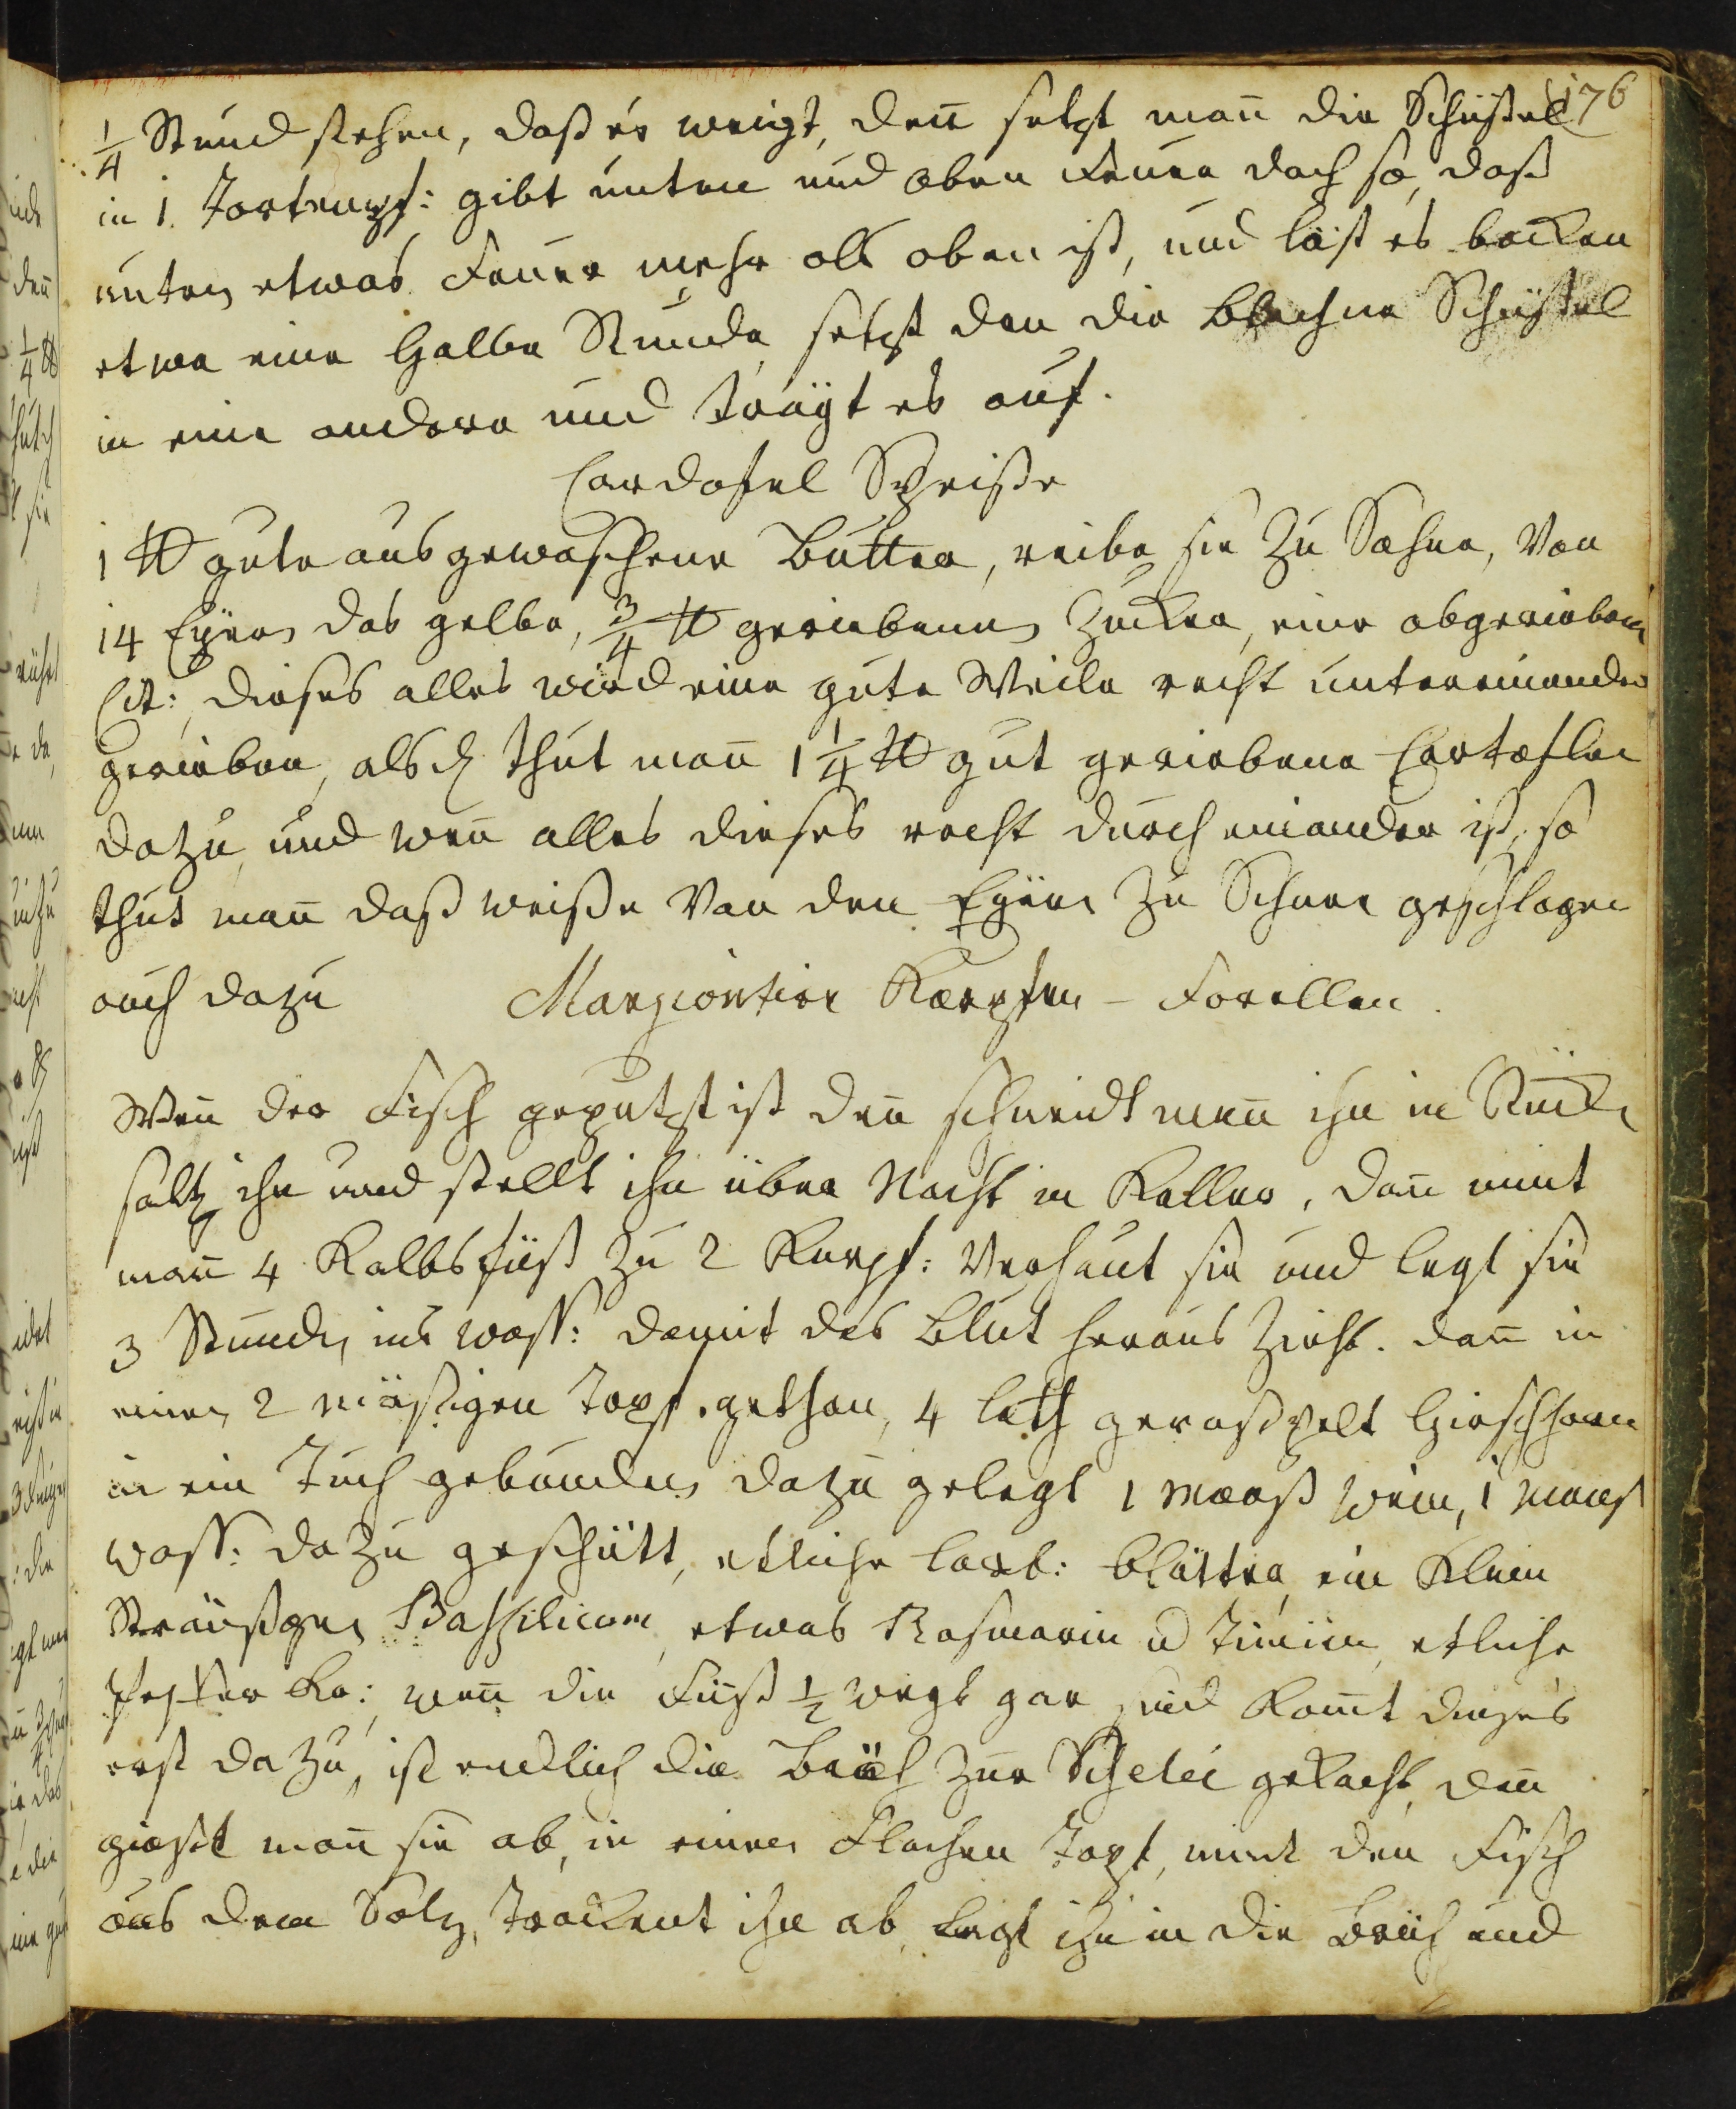 176
1/4 Stund stehen, daß es weigt, den̄ setzt man̄ die Schüßel
in 1. Tortenpf: gibt unten und oben Feuer doch so, daß
unten etwas Feuer mehr als oben ist, und läst es backen
etwa eine halbe Stunde, setzt den die blechne Schüßel
in eine andere und trägt es auf.
Cardofel Speiße
1 ℔ gute ausgewaschene Butter, reibe sie zu Sahne, von
14 Eyern das gelbe, 3/4 ℔ geriebenen Zucker, eine abgeriebene
Cit: dieses alles wird eine gute Weile recht untereinander
gerieben, alsd thut man̄ 1 1/4 ℔ gut geriebene Cartoflen
dazu, und wen̄ alles dieses recht durch einander ist, so
thut man̄ daß weiße von den Eyern zu Schnee geschlagen
auch dazu
Marziontier Karpfen - Forellen.
Wen̄ der Fisch geputzt ist den̄ schneidt man̄ ihn in Stück
saltz ihn und stellt ihn über Nacht in Keller, dan̄ nimt
man̄ 4 Kalbsfüß zu 2 Karpf: verhaut sie und legt sie
3 Stunden ins waß: damit das Blut heraus zieht. dan̄ in
einen 2 mäßigen Topf gethan, 4 loth geraßpelt Hirschhorn
in ein Tuch gebunden dazu gelegt 1 Maaß wein, 1 Maas
waß: dazu geschütt, etliche Lorb: blätter, ein klein
Sträußgen Baßilicum, etwas Rosmarin u Timian, etliche
Pfeffer Kö: wen̄ die Füß 1/2 wegs gar sind kom̄t dieses
erst dazu, ist endlich die Brüh zur Schelei gekocht, den̄
giest man̄ sie ab, in einen flachen Topf, nimt den Fisch
aus dem Salz, trockent ihn ab, legt ihn in die Brüh und